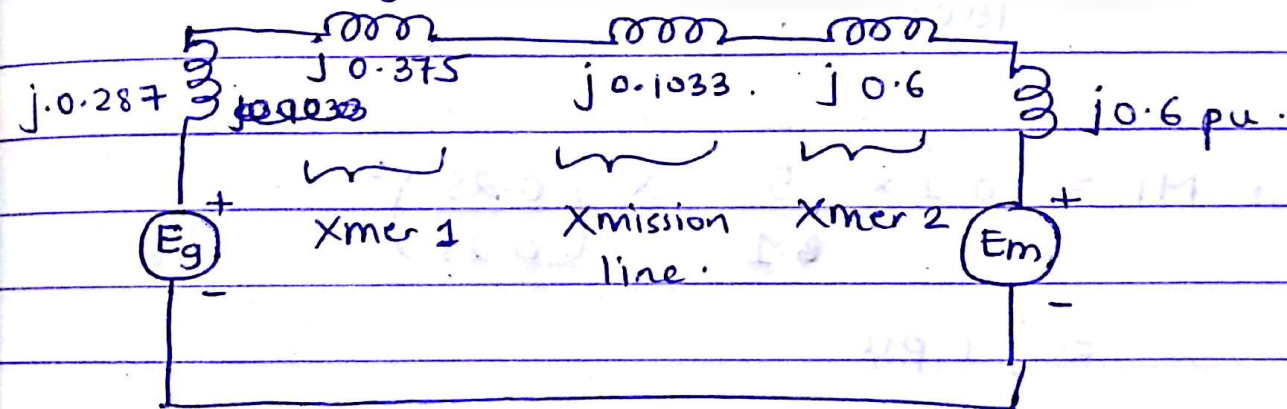 j 0.375
j 0.1033 .
j 0.6
j.0.287
j0.6 pu .
Xmer 1
Xmission
line .
Xmer 2
+
Eg
-
+
Em
-